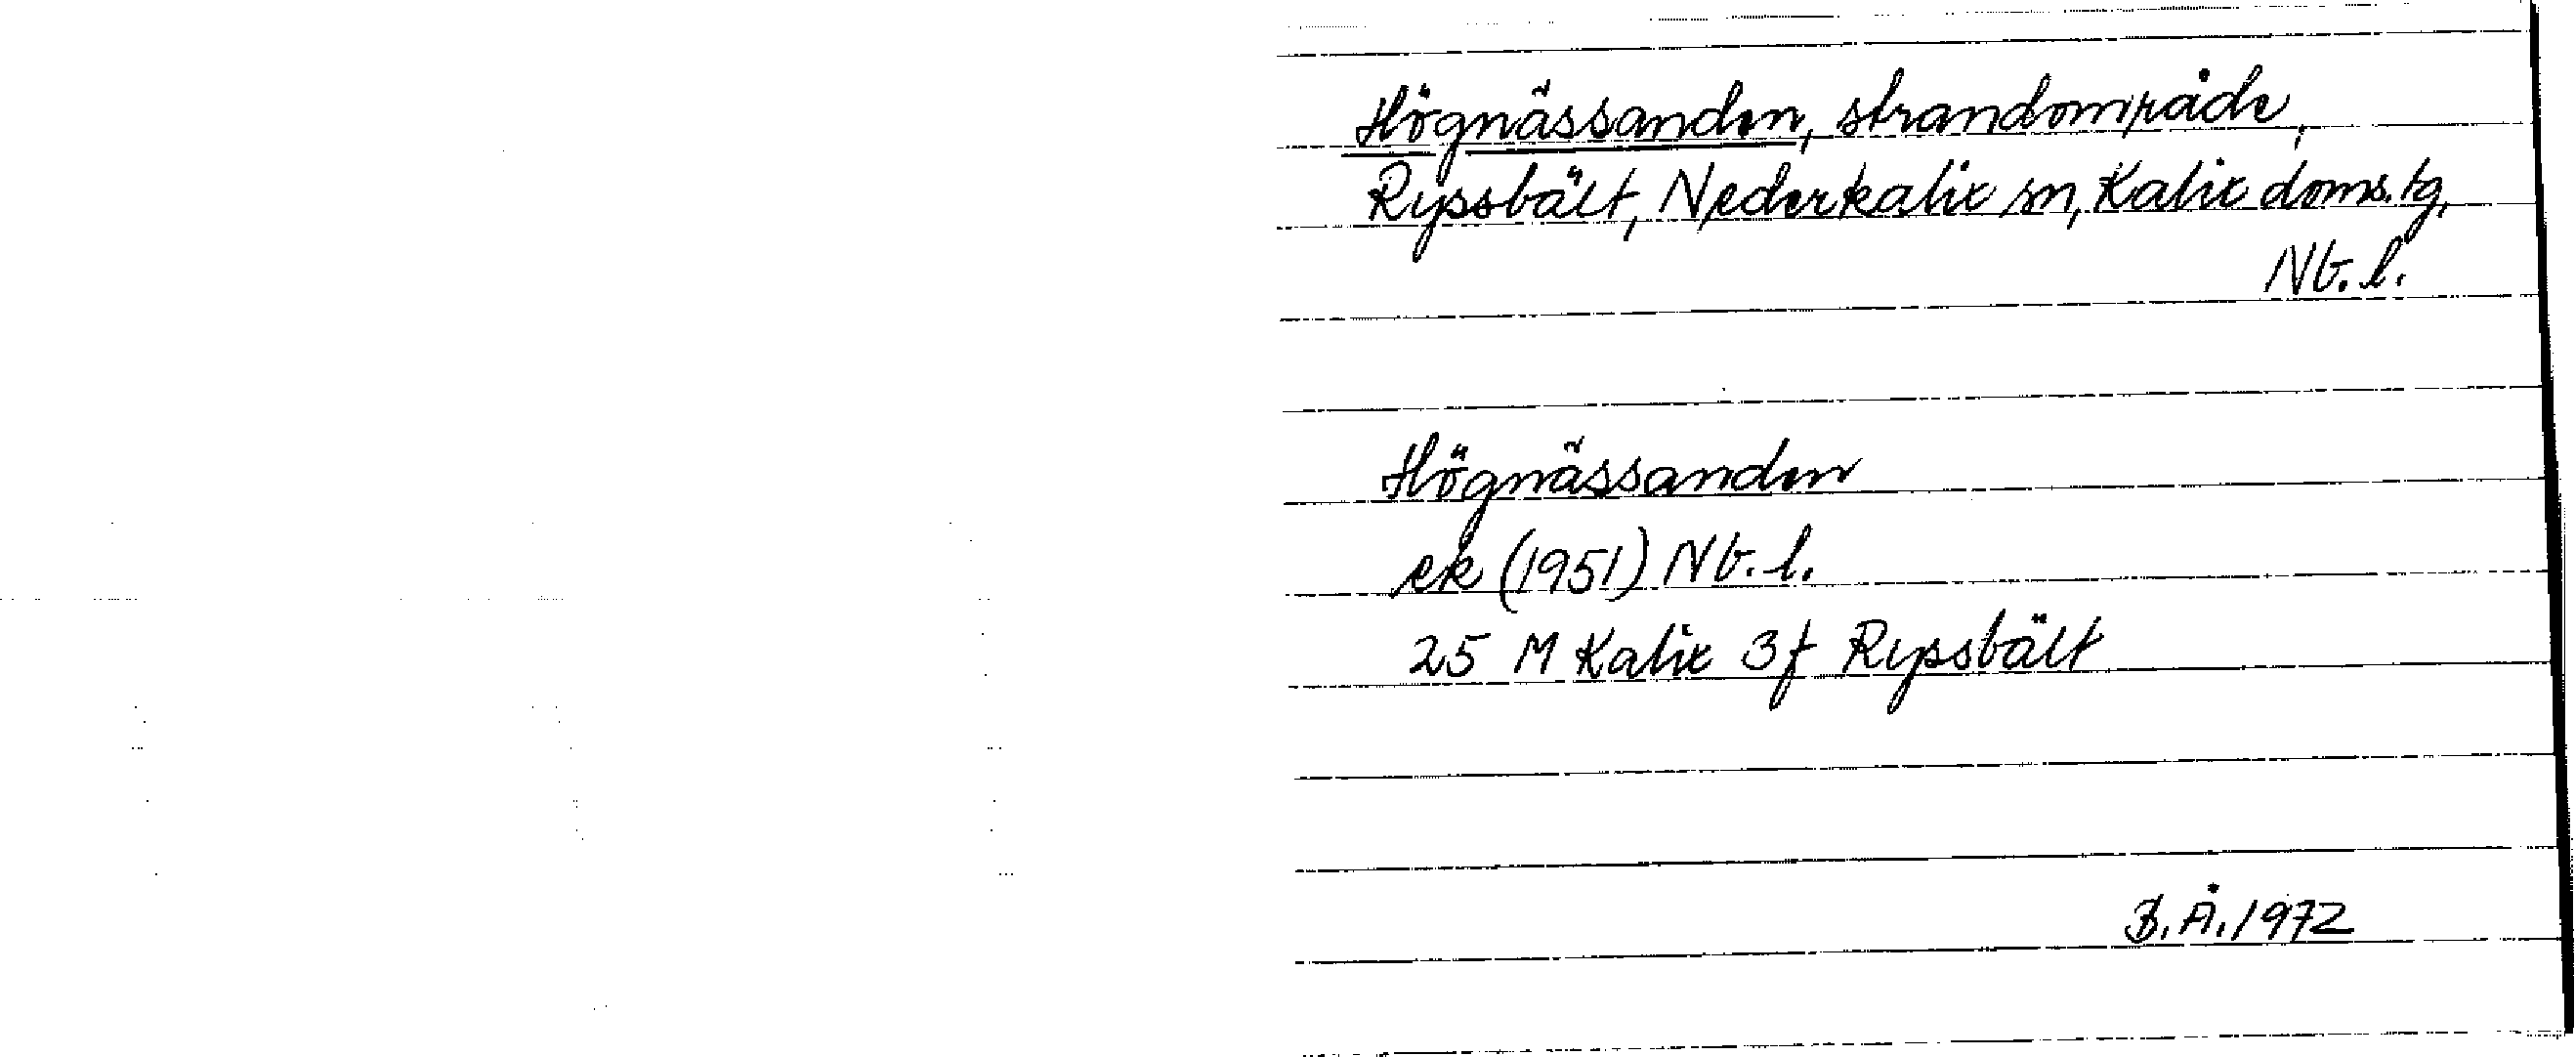 Högnässanden, strandområde,
Ryssbält, Nederkalix sn, Kalix doms.tg,
Nb.l.
Högnässanden
ek (1951) Nb.l.
25 M Kalix 3f Ryssbält
B.Å.1972